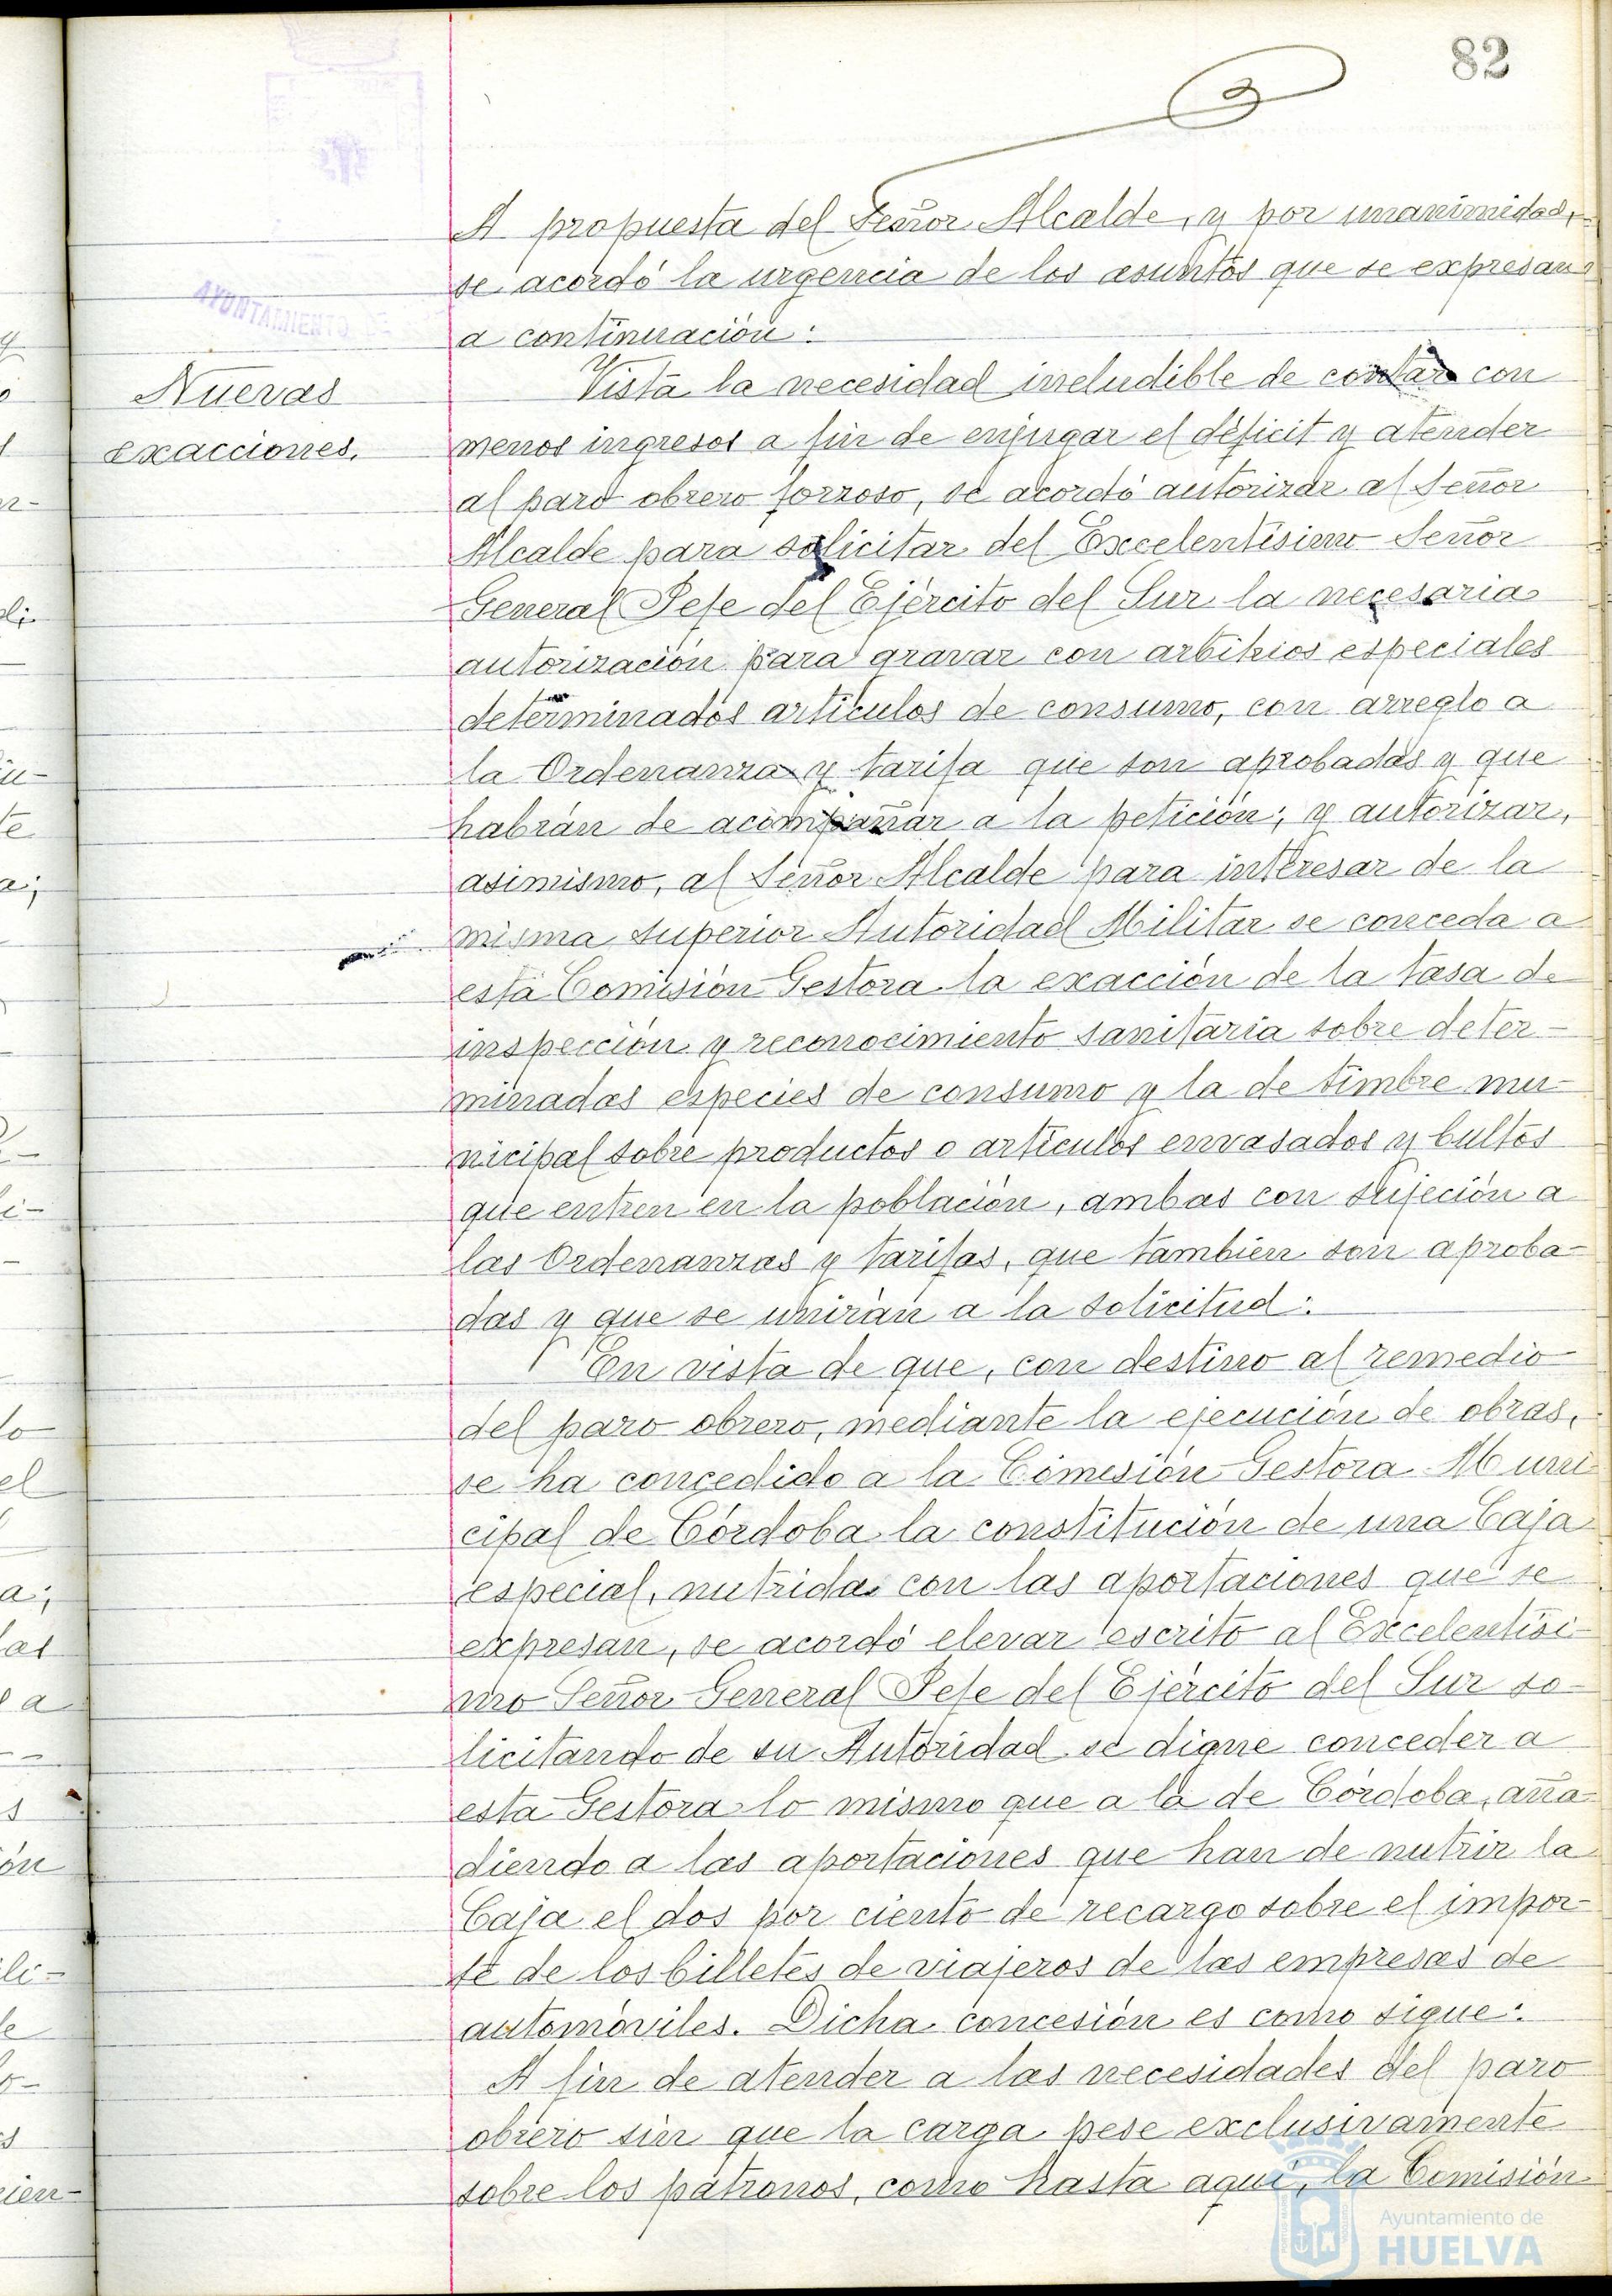 82
AYUNTAMIENTO DE
A propuesta del Señor Alcalde, y por unanimidad,
se acordó la urgencia de los asuntos que se expresan
a continuación:
Nuevas
exacciones.
Vista la necesidad ineludible de contar con
menos ingresos a fin de enjugar el déficit y atender
al paro obrero forzoso, se acordó autorizar al Señor
Alcalde para solicitar del Excelentísimo Señor
General Jefe del Ejército del Sur la necesaria
autorización para gravar con arbitrios especiales
determinados artículos de consumo, con arreglo a
la Ordenanza y tarifa que son aprobadas y que
habrán de acompañar a la petición; y autorizar,
asimismo, al Señor Alcalde para interesar de la
misma superior Autoridad Militar se conceda a
esta Comisión Gestora la exacción de la tasa de
inspección y reconocimiento sanitaria sobre deter-
minadas especies de consumo y la de timbre mu-
nicipal sobre productos o artículos envasados y bultos
que entren en la población, ambas con sujeción a
las Ordenanzas y tarifas, que también son aproba-
das y que se unirán a la solicitud.
En vista de que, con destino al remedio
del paro obrero, mediante la ejecución de obras,
se ha concedido a la Comisión Gestora Muni
cipal de Córdoba la constitución de una Caja
especial, nutrida con las aportaciones que se
expresan, se acordó elevar escrito al Excelentísi-
mo Señor General Jefe del Ejército del Sur so-
licitando de su Autoridad se digne conceder a
esta Gestora lo mismo que a la de Córdoba, aña-
diendo a las aportaciones que han de nutrir la
Caja el dos por ciento de recargo sobre el impor-
te de los billetes de viajeros de las empresas de
automóviles. Dicha concesión es como sigue:
A fin de atender a las necesidades del paro
obrero sin que la carga pese exclusivamente
sobre los patronos, como hasta aquí, la Comisión
Ayuntamiento de
HUELVA